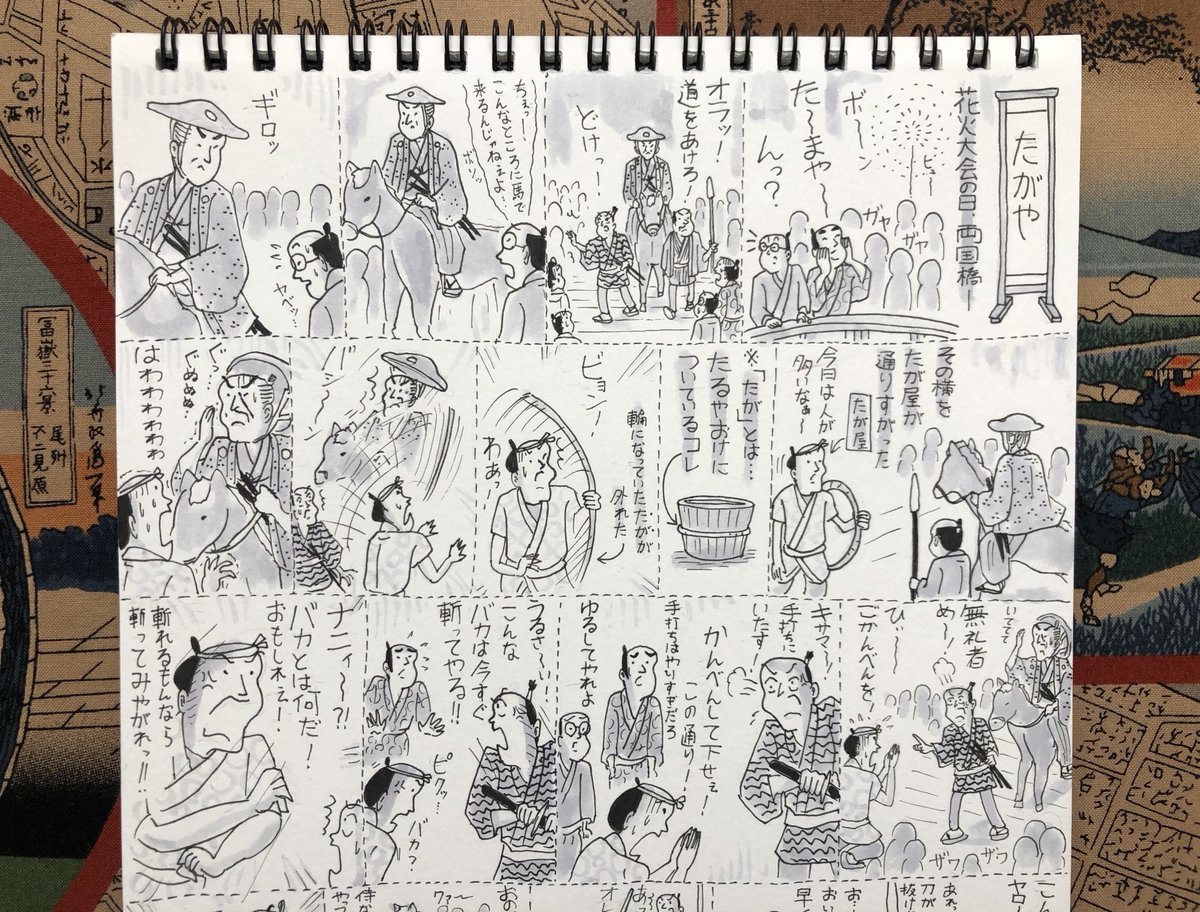 たがや
花火大会の日、両国橋ー
ボーン
ヒュ〜
た〜まや〜
ん?
ガヤ
ザワ
オラッー!
道をあけろ!
どけっー!
ちぇっー
こんなところに馬で
来るんじゃねぇよ
ボソッ
ギロッ
ヤベッ
その横を
たが屋が
通りすがった
たが屋
今日は人が
多いなぁ〜
※「たが」とは…
たるやおけに
ついているコレ
ビョン!
輪になっていたたがが
外れた
わあっー!
ぐっ…
ぐぬぬぬ…
はわわわわわわ
いててて
無礼者
め〜!
ひぃ〜
ごかんべんを!
ザワ
ザワ
キサマー!
手打ちに
いたす!
かんべんして下せぇー
この通りー!
手打ちはやりすぎだろ
ゆるしてやれよ
うるさ〜い
こんな
バカは今すぐ
斬ってやる!!
ピクッ…
バカ?
ナニィ〜?!
バカとは何だ!
おもしれえー!
斬れるもんなら
斬ってみやがれっ!!
冨嶽三十六景
尾州
不二見原